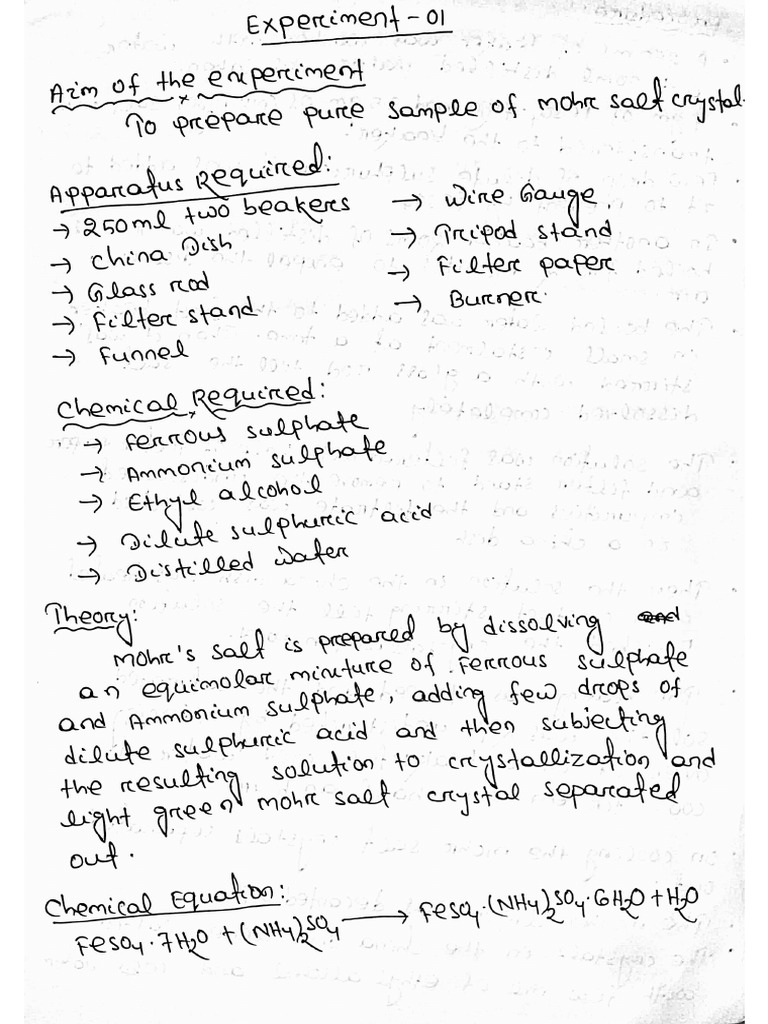 Experiment - 01
Aim of the experiment
To prepare pure sample of mohr salt crystal.
Apparatus Required:
→ 250ml two beakers
→ China Dish
→ Glass rod
→ Filter stand
→ Funnel
→ Wire Gauge
→ Tripod stand
→ Filter paper
→ Burner.
Chemical Required:
→ Ferrous sulphate
→ Ammonium sulphate
→ Ethyl alcohol
→ Dilute sulphuric acid
→ Distilled Water
Theory:
Mohr's salt is prepared by dissolving
an equimolar mixture of Ferrous sulphate
and Ammonium sulphate, adding few drops of
dilute sulphuric acid and then subjecting
the resulting solution to crystallization and
light green mohr salt crystal separated
out.
Chemical Equation:
FeSO4·7H2O + (NH4)2SO4 → FeSO4·(NH4)2SO4·6H2O + H2O